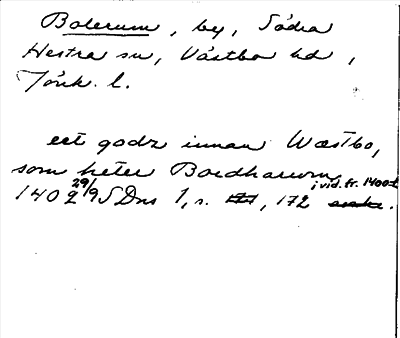 Bolerum, by, Södra
Hestra sn, Västbo hd,
Jönk. l.
eet godz innan Wæstbo,
som heter Boedharum
i vid. fr. 1400-t
1402 29/9 SDns 1, s. 172